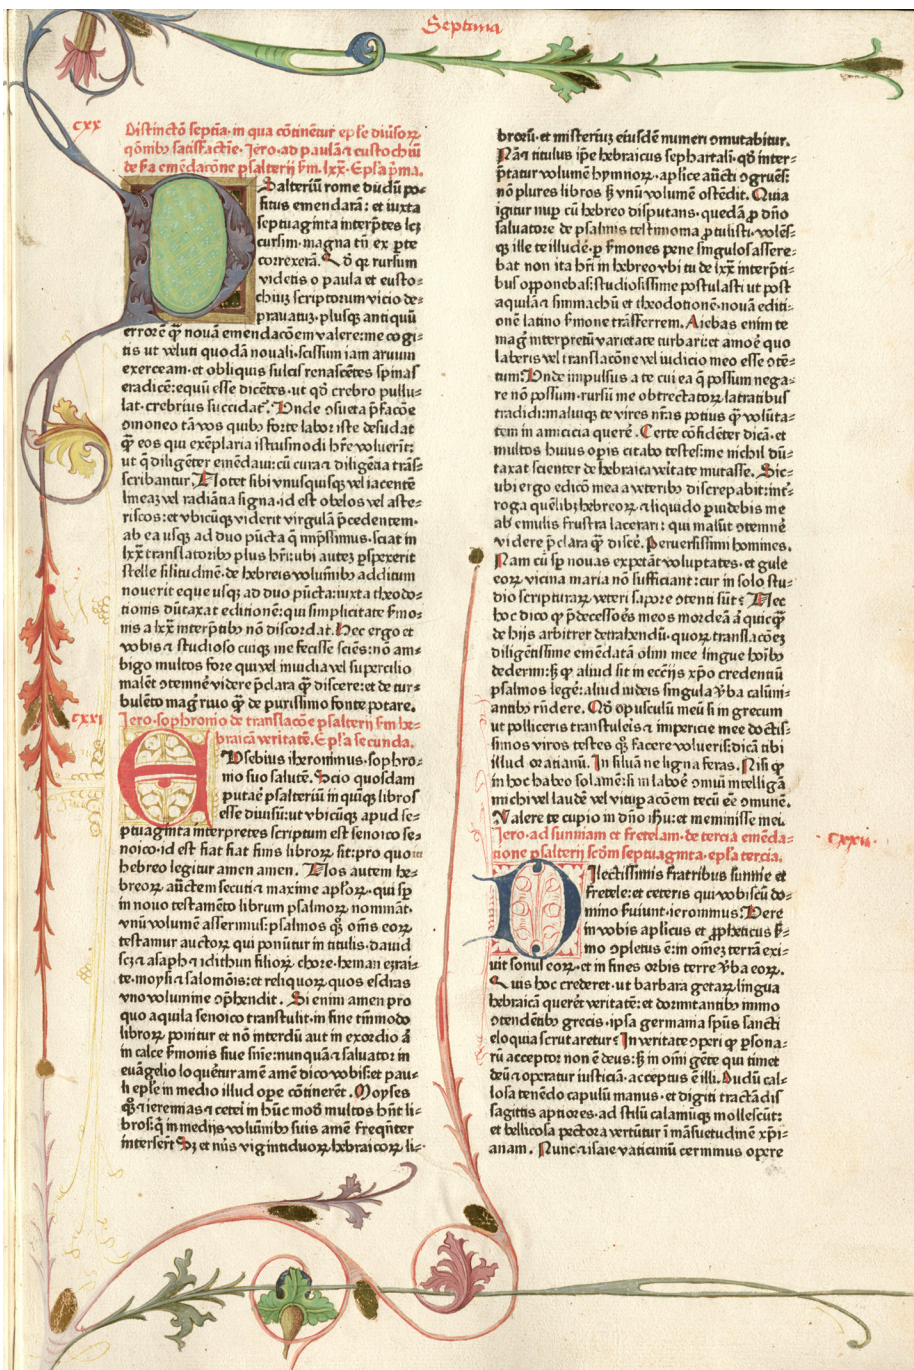 Septima
cxx
Distinctõ septĩa· in qua cõtinẽtur epl̃e diũsoꝝ
qõnibꝰ satisfactiẽ· Jero· ad paulã ⁊ eustochiũ
psalterij ẜm· lxx· Epl̃a p̃ma.
Psalteriũ rome dudũ po⸗
situs emendarã: et iuxta
septuaginta interp̃tes lcꝫ
cursim· magna tñ ex ꝑte
correxerã. Qõ qꝛ rursum
videtis o paula et eusto⸗
chiuꝫ scriptorum vicio de⸗
prauatuꝫ· plusqꝫ antiquũ
errorẽ qᷓꝫ nouã emendacõem valere: me cogi⸗
tis ut veluti quodã nouali· scissum iam aruum
exerceam· et obliquis sulcis renascẽtes spinas
eradicẽ: equũ esse dicẽtes· ut qð crebro pullu⸗
lat· crebrius succidat᷑. Unde ꝯsueta p̃facõe
ꝯmoneo tã vos quibꝰ forte labor iste desudat
qᷓꝫ eos qui exẽplaria istiusmodi hr̃e voluerĩt:
ut q̃ diligẽter emẽdaui: cũ cura ⁊ diligẽcia trãs⸗
scribantur. Notet sibi vnusquisqꝫ vel iacentẽ
lineaꝫ vel radiãtia signa· id est obelos vel aste⸗
riscos: et vbicũqꝫ viderit virgulã p̃cedentem·
ab ea usqꝫ ad duo pũcta q̃ imp̃ssimus· sciat in
lxx translatoribꝰ plus hr̃i: ubi auteꝫ ꝑspexerit
stelle silitudinẽ· de hebreis volunĩbꝰ additum
nouerit eque usqꝫ ad duo pũcta: iuxta theodo⸗
tionis dũtaxat editionẽ: qui simplicitate ẜmo⸗
nis a lxx interp̃tibꝰ nõ discordat. Hec ergo et
vobis ⁊ studioso cuiqꝫ me fecisse sciẽs: nõ am⸗
bigo multos fore qui vel inuidia vel supercilio
malẽt ꝯtemnẽ videre p̃clara qᷓꝫ discere: et de tur⸗
bulẽto mag᷑ riuo qᷓꝫ de purissimo fonte potare.
cxxi
Jero· sophronio de translacõe psalterij ẜm he⸗
braicã veritatẽ. Epl̃a secunda.
EUsebius iheronimus· sophro⸗
nio suo salutẽ. Scio quosdam
putare psalteriũ in quĩqꝫ libros
esse diuisũ: ut vbicũqꝫ apud se⸗
ptuaginta interpretes scriptum est genoito ge⸗
noito· id est fiat fiat finis libroꝝ sit: pro quo in
hebreo legitur amen amen. Nos autem he⸗
breoꝝ auc̃tem secuti ⁊ maxime apl̃oꝝ· qui sꝑ
in nouo testamẽto librum psalmoꝝ nominãt·
vnũ volumẽ asserimus: psalmos qꝫ om̃s eoꝝ
testamur auctoꝝ qui ponũtur in titulis· dauid
scꝫ ⁊ asaph ⁊ idithun filioꝝ chore· heman ezrai⸗
te· moysi ⁊ salomõis: et reliquoꝝ quos esdras
vno volumine ꝯp̃hendit. Si enim amen pro
quo aquila genoito transtulit· in fine tm̃modo
libroꝝ ponitur et nõ interdũ aut in exordio aut
in calce ẜmonis siue sñie: nunquã ⁊ saluator in
euãgelio loquẽtur amẽ amẽ dico vobis: et pau⸗
li epl̃e in medio illud oꝑe cõtinerẽt. Moyses
qꝫ ⁊ ieremias ⁊ ceteri in hũc modũ multos hñt li⸗
bros: q̃ in medijs volunĩbꝰ suis amẽ freq̃nter
interserũt Sꝫ et nũs vigintiduoꝝ hebraicoꝝ li⸗
broꝝ: et misteriuꝫ eiusdẽ numeri ꝯmutabitur.
Nã ⁊ titulus ip̃e hebraicus sephartali· qð inter⸗
p̃tatur volumẽ hymnoꝝ· aplice auc̃ti ꝯgruẽs:
nõ plures libros sꝫ vnũ volumẽ ostẽdit. Quia
igitur nuꝑ cũ hebreo disputans· quedã ꝓ dño
saluatore de psalmis testimonia ꝓtulisti· volẽs⸗
qꝫ ille te illudẽ· ꝑ ẜmones pene singulos assere⸗
bat non ita hr̃i in hebreo vbi tu de lxx interp̃ti⸗
bus opponebas: studiosissime postulasti ut post
aquilã ⁊ simmachũ et theodotionẽ· nouã editi⸗
onẽ latino ẜmone trãsferrem. Aiebas enim te
mag᷑ interpretũ varietate turbari: et amoꝛẽ quo
laberis vel translacõne vel iudicio meo esse ꝯtẽ⸗
tum: Unde impulsus a te cui ea q̃ possum nega⸗
re nõ possum· rursũ me obtrectatoꝝ latratibus
tradidi: maluiqꝫ te vires nr̃as potius qᷓꝫ volũta⸗
tem in amicicia querẽ. Certe cõfidẽter dicã· et
multos huius oꝑis citabo testes: me nichil dũ⸗
taxat scienter de hebraica vẽitate mutasse. Sic⸗
ubi ergo edicõ mea a veteribꝰ discrepabit: int̃⸗
roga quẽlibꝫ hebreoꝝ· ⁊ liquido ꝑuidebis me
ab emulis frustra lacerari: qui malũt ꝯtemnẽ
videre p̃clara qᷓꝫ discẽ. Peruersissimi homines.
Nam cũ sꝑ nouas expetãt voluptates· et gule
eoꝝ vicina maria nõ sufficiant: cur in solo stu⸗
dio scripturaꝝ veteri sapore ꝯtenti sũt: Nec
hoc dico qꝫ p̃decessoẽs meos mordeã aut quicqᷓꝫ
de hijs arbitrer detrahendũ· quoꝝ translacõeꝫ
diligẽtissime emẽdatã olim mee lingue hoĩbꝰ
dederim: sꝫ qꝫ aliud sit in eccl̃ijs xp̃o credentiũ
psalmos legẽ: aliud iudeis singula v̾ba calũni⸗
antibꝰ rñdere. Qð opusculũ meũ si in grecum
ut polliceris transtuleris ⁊ imꝑicie mee doctis⸗
simos viros testes qꝫ facere volueris: dicã tibi
illud oratianũ. In siluã ne ligna feras. Nisi qꝫ
in hoc habeo solamẽ: si in laboꝛẽ ꝯmũi intelligã
michi vel laudẽ vel vituꝑacõem tecũ eẽ ꝯmunẽ.
Valere te cupio in dño ihũ: et meminisse mei.
cxxii
Jero· ad sunniam et fretelam· de tercia emẽda⸗
tione psalterij scdm septuaginta· epl̃a tercia.
DIlectissimis fratribus sunnie et
fretele: et ceteris qui vobiscũ do⸗
mino ẜuiunt· ieronimus: Vere
in vobis aplicus et ꝓpheticus ẜ⸗
mo ꝯpletus ẽ: in om̃eꝫ terrã exi⸗
uit sonus eoꝝ· et in fines orbis terre v̾ba eoꝝ.
Quis hoc crederet· ut barbara getaꝝ lingua
hebraicã querẽt veritatẽ: et dormitantibꝰ immo
ꝯtendẽtibꝰ grecis· ip̃sa germania spũs sancti
eloquia scrutaretur: In veritate ꝯperi qꝫ ꝑsona⸗
rũ acceptor non ẽ deus: sꝫ in om̃i gẽte qui timet
deũ ⁊ operatur iusticiã· acceptus ẽ illi. Dudũ cal⸗
losa tenẽdo capulũ manus· et digiti tractãdis
sagittis aptiores· ad stilũ calamũqꝫ mollescũt:
et bellicosa pectora vertũtur ĩ mãsuetudinẽ xp̃i⸗
anam. Nunc ⁊ isaie vaticiniũ cernimus opere